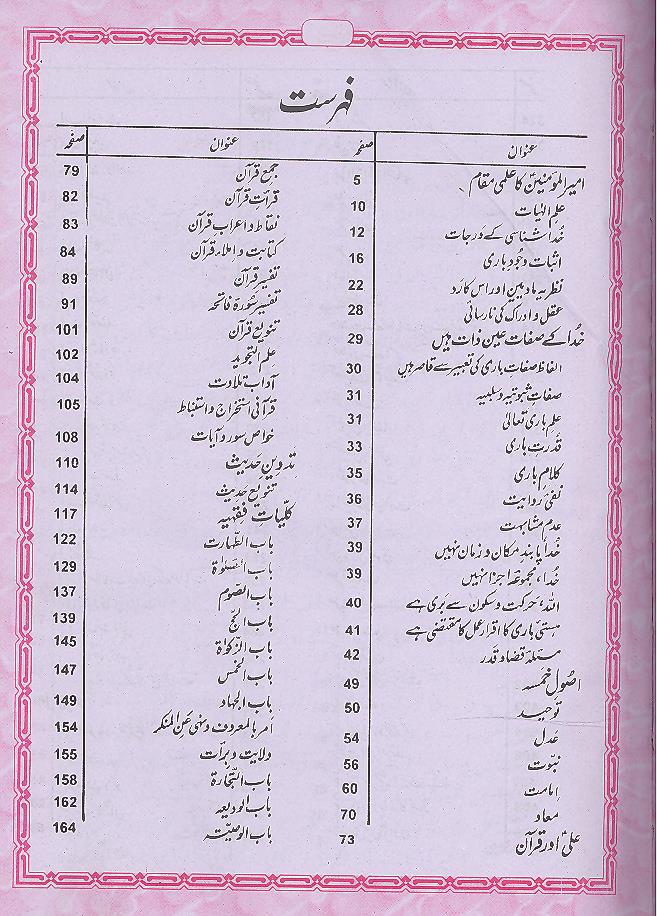 فہرست
عنوان صفحہ
امیرالمومنینؑ کا علمی مقام 5
علم الٰہیات 10
خدا شناسی کے درجات 12
اثبات وجود باری 16
نظریہ مادیین اور اس کا رد 22
عقل و ادراک کی نارسائی 28
خدا کے صفات عین ذات ہیں 29
الفاظ صفات باری کی تعبیر سے قاصر ہیں 30
صفات ثبوتیہ و سلبیہ 31
علم باری تعالیٰ 31
قدرت باری 33
کلام باری 35
نفی رویت 36
عدم مشابہت 37
خدا پابند مکان و زمان نہیں 39
خدا، مجموعہ اجزا نہیں 39
اللہ، حرکت و سکون سے بری ہے 40
ہستی باری کا اقرار عقل کا مقتضی ہے 41
مسئلہ قضا و قدر 42
اصول خمسہ 49
توحید 50
عدل 54
نبوت 56
امامت 60
معاد 70
علیؑ اور قرآن 73
عنوان صفحہ
جمع قرآن 79
قرات قرآن 82
نقاط و اعراب قرآن 83
کتابت و املاء قرآن 84
تفسیر قرآن 89
تفسیر سورۃ فاتحہ 91
تنویع قرآن 101
علم التجوید 102
آداب تلاوت 104
قرآنی استخراج و استنباط 105
خواص سور و آیات 108
تدوین حدیث 110
تنویع حدیث 114
کلیات فقہیہ 117
باب الطہارت 122
باب الصلوٰۃ 129
باب الصوم 137
باب الحج 139
باب الزکوٰۃ 145
باب الخمس 147
باب الجہاد 149
امر بالمعروف و نہی عن المنکر 154
ولایت و برات 155
باب التجارۃ 158
باب الودیعہ 162
باب الوصیتہ 164